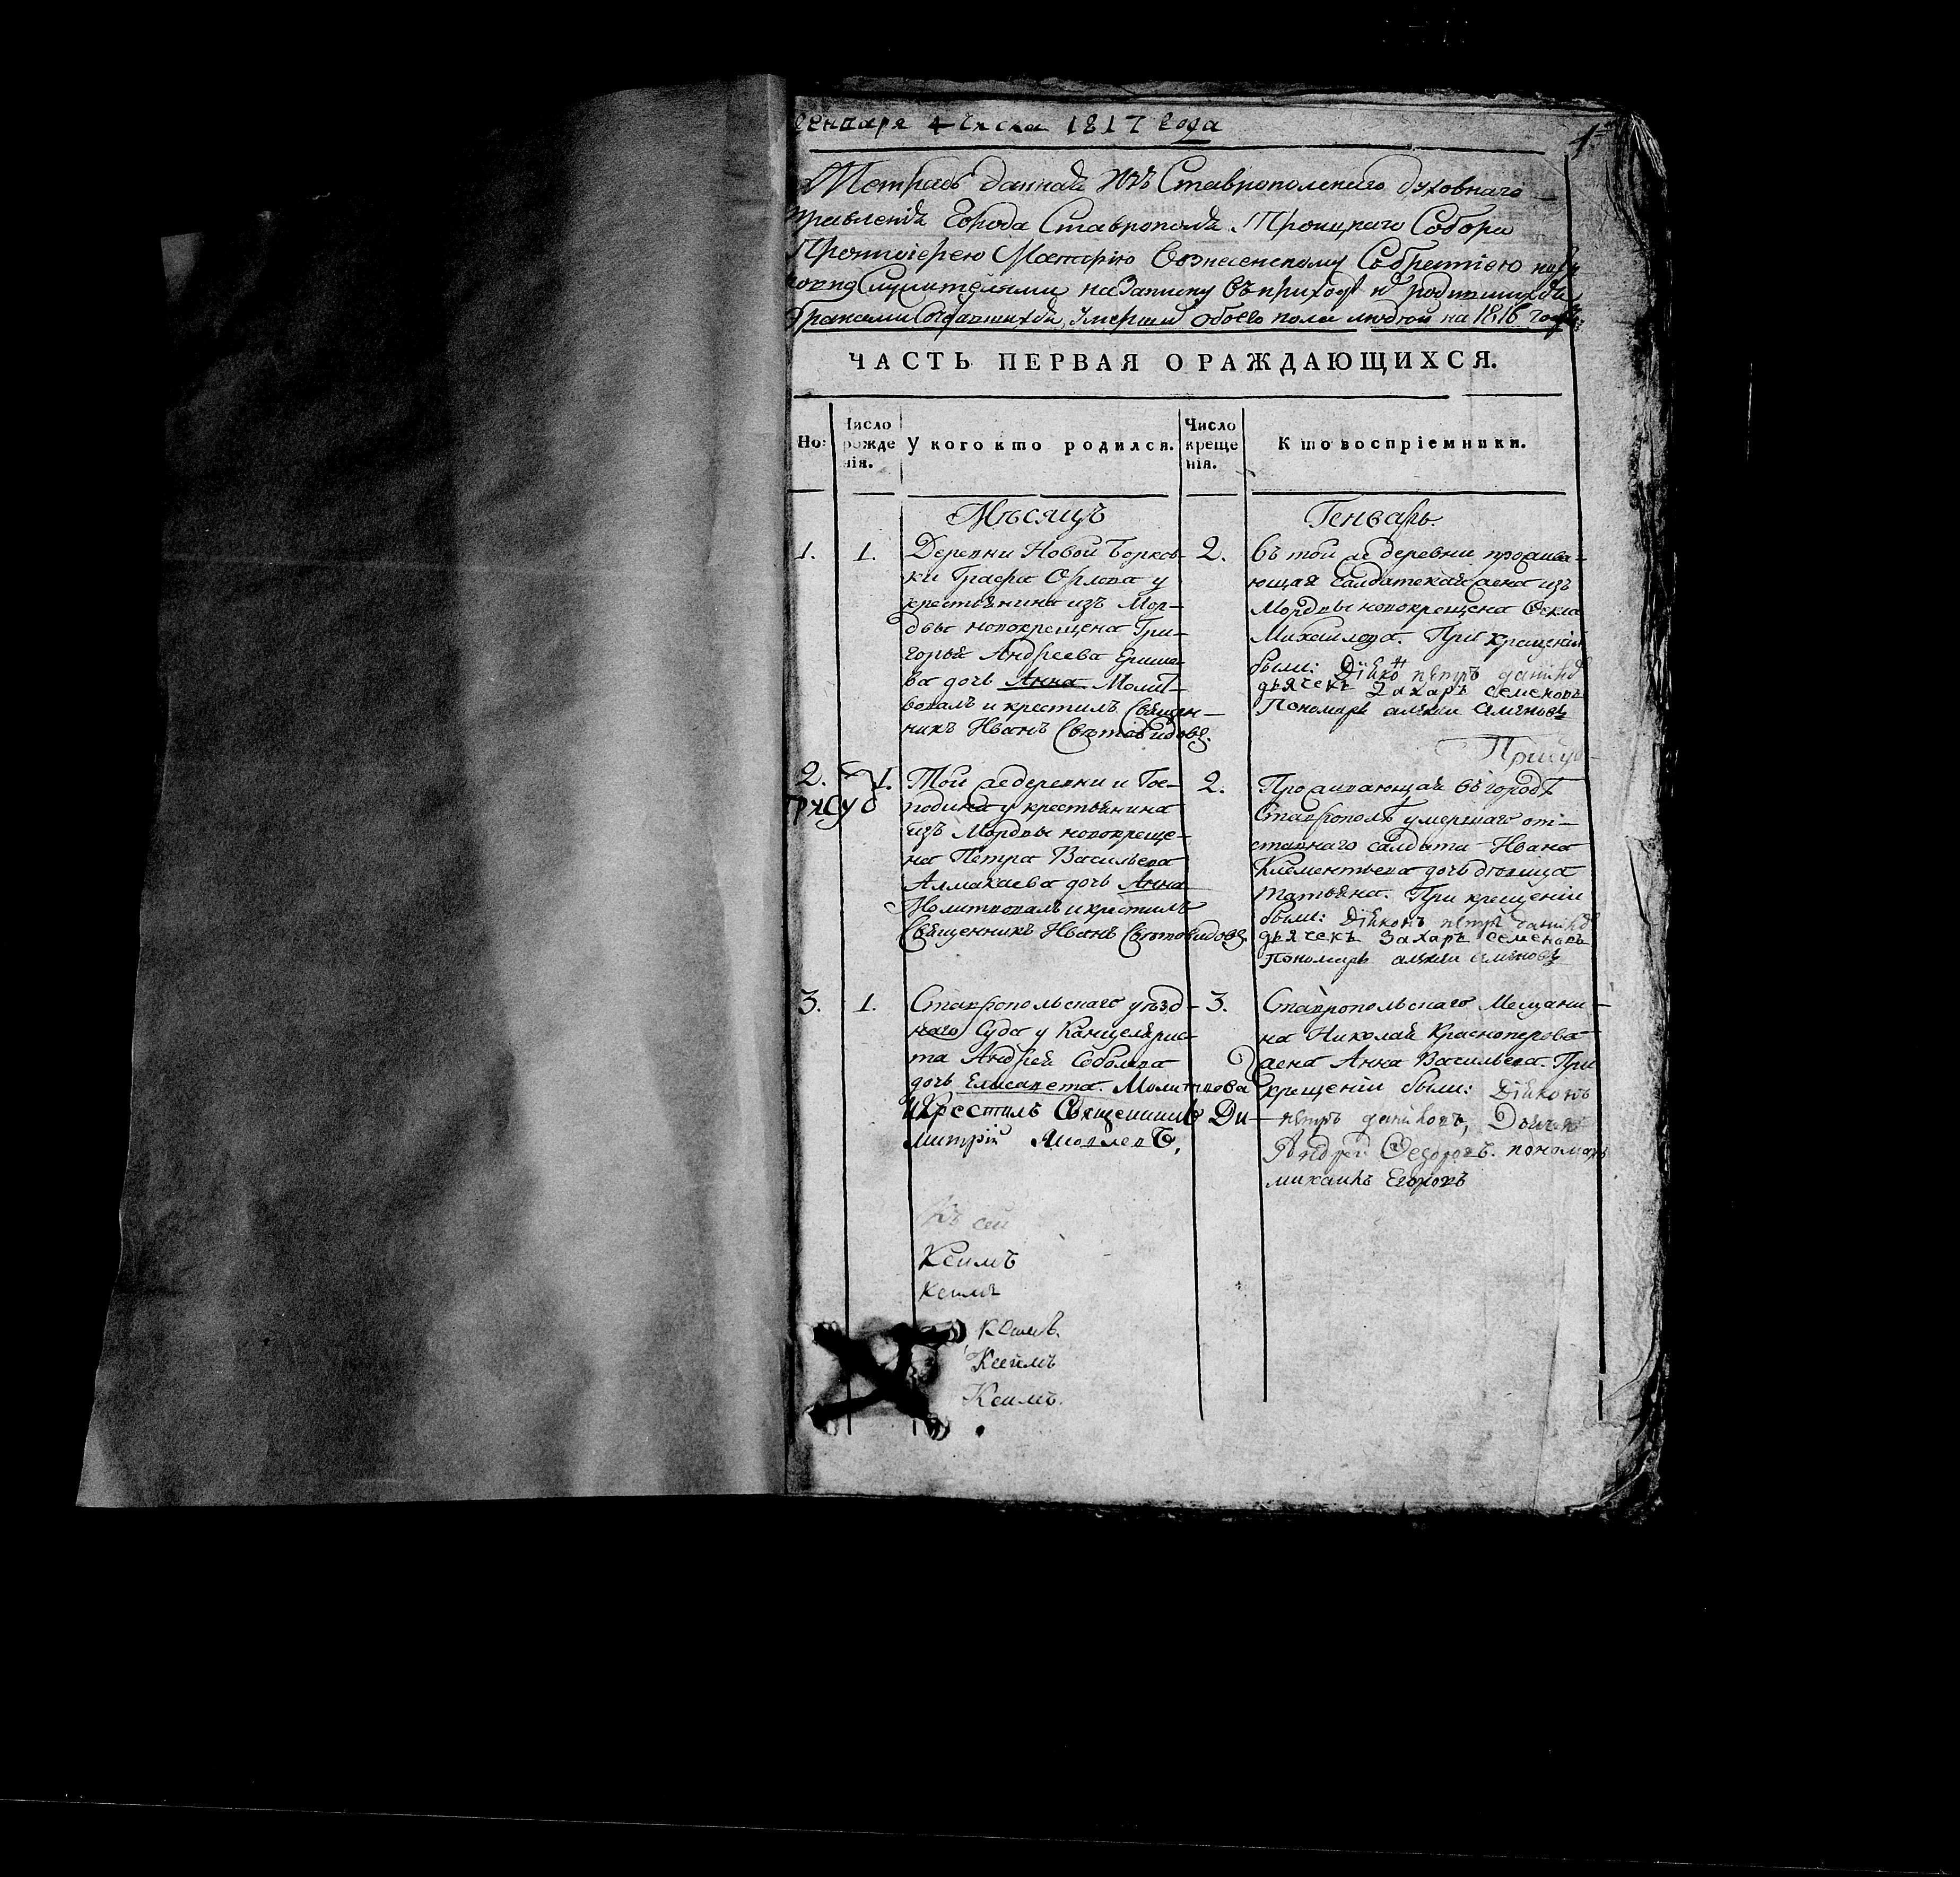 Генваря 4 числа 1817 Года
1
Тетрадь данная изъ Ставропольского духовнаго
правленія Города Ставрополя Троицкаго Собора
Протоіерею Вознесенскому Съ братіею
служителями на Записку въ приходѣ родившихся
браками Сочетавшихся, умершихъ обоего пола людей на 1816 годъ
ЧАСТЬ ПЕРВАЯ О РАЖДАЮЩИХСЯ.
Но: Число рожденія. У кого кто родился. Число крещенія. Кто воспріемники.
Мѣсяцъ Генварь.
1. 1.
Деревни Новой Борков-
ки Графа Орлова у
крестьянина изъ Мор-
двы новокрещена Гри-
горья Андреева
ва дочь Анна Молит-
вовалъ и крестилъ Священ-
никъ Иванъ Свѣтовидовъ.
2.
Въ той же деревни прожива-
ющая солдатская жена изъ
Мордвы новокрещена Фекла
Михаилова. При крещеніи
были: Діяконъ петръ
дьячекъ Захаръ семеновъ
Пономарь алѣкѣи семѣновъ
2. 1.
Той же деревни и Гос-
подина у крестьянина
изъ Мордвы новокреще-
на Петра Васильева
Алмакаева дочь Анна
Молитвовалъ и крестилъ
Священникъ Иванъ Свѣтовидовъ.
2.
Проживающая въ городѣ
Ставрополѣ умершаго от-
ставнаго салдата Ивана
Клементьева дочь дѣвица
Татьяна. При крещеніи
были: Діяконъ петръ
дьячекъ Захаръ семеновъ
Пономарь алѣкѣи семѣновъ
3. 1.
Ставропольскаго уѣзд-
наго Суда у Канцеляри-
ста Андрей Соболева
дочь Елисавета. Молитвова
И Крестилъ Священникъ Ди-
митрій Яковлевъ,
3.
Ставропольскаго Мещани-
на Николай Красноперова
жена Анна Васильева. При
крещеніи были: Діяконъ
петръ
Андрей Федоровъ. пономарь
михаилъ Егоровъ
къ сей
Ксимъ
Ксимъ
Ксимъ.
Ксимъ
Ксимъ.